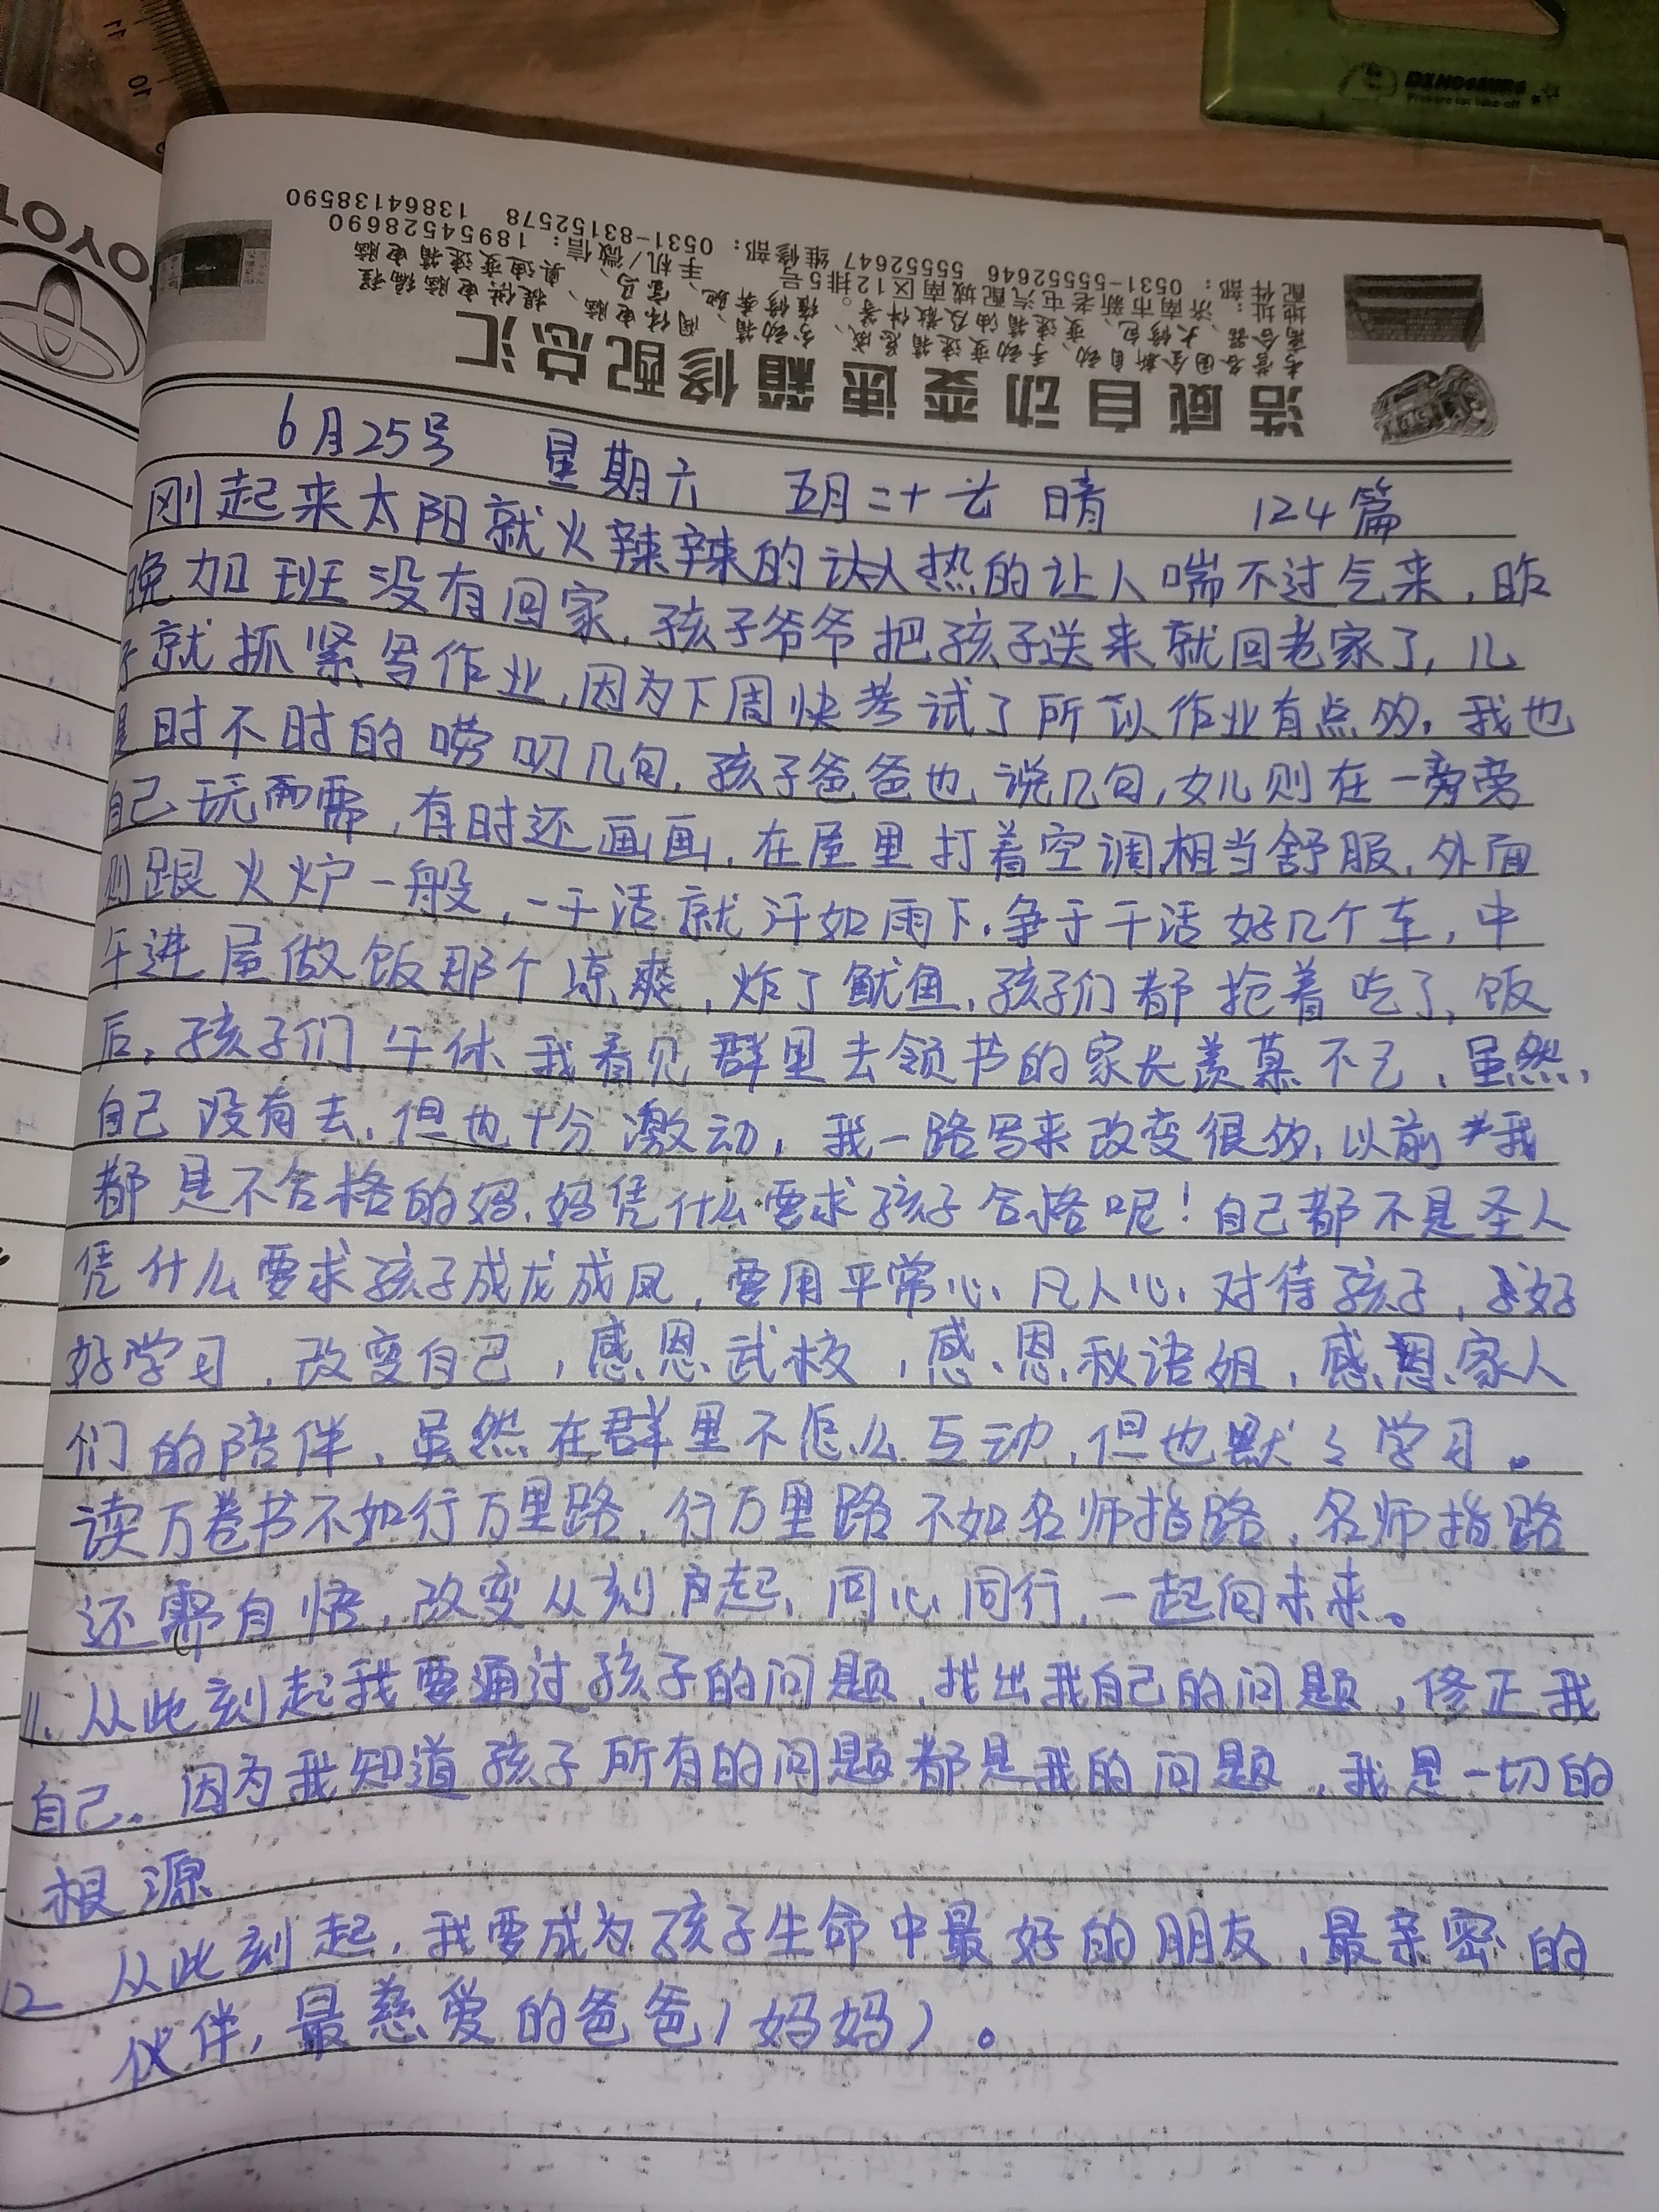 TOYO
DINOSAURS
浩威自动变速箱修配总汇
地址：济南市新老屯汽配城南区12排5号
配件部：0531-55552646 55552647 维修部：0531-83152578 13864138590
手机/微信：18954528690
6月25号 星期六 五月二十七 晴 124篇
刚起来太阳就火辣辣的认人热的让人喘不过气来，昨
晚加班没有回家，孩子爷爷把孩子送来就回老家了，儿
子就抓紧写作业，因为下周快考试了所以作业有点多，我也
是时不时的唠叨几句，孩子爸爸也说几句，女儿则在一旁旁
自己玩耍，有时还画画，在屋里打着空调相当舒服，外面
则跟火炉一般，一干活就汗如雨下，争于干活好几个车，中
午进屋做饭那个凉爽，炸了鱿鱼，孩子们都抢着吃了，饭
后，孩子们午休我看见群里去领书的家长羡慕不已，虽然，
自己没有去，但也十分激动，我一路写来改变很多，以前我
都是不合格的妈，妈凭什么要求孩子合格呢！自己都不是圣人
凭什么要求孩子成龙成凤，要用平常心，凡人心，对待孩子，好
好学习，改变自己，感恩武校，感恩秋语姐，感恩家人
们的陪伴，虽然在群里不怎么互动，但也默々学习。
读万卷书不如行万里路，行万里路不如名师指路，名师指路
还需自悟，改变从刻启起，同心同行，一起向未来。
11、从此刻起我要通过孩子的问题，找出我自己的问题，修正我
自己。因为我知道孩子所有的问题都是我的问题，我是一切的
根源
12 从此刻起，我要成为孩子生命中最好的朋友，最亲密的
伙伴，最慈爱的爸爸（妈妈）。